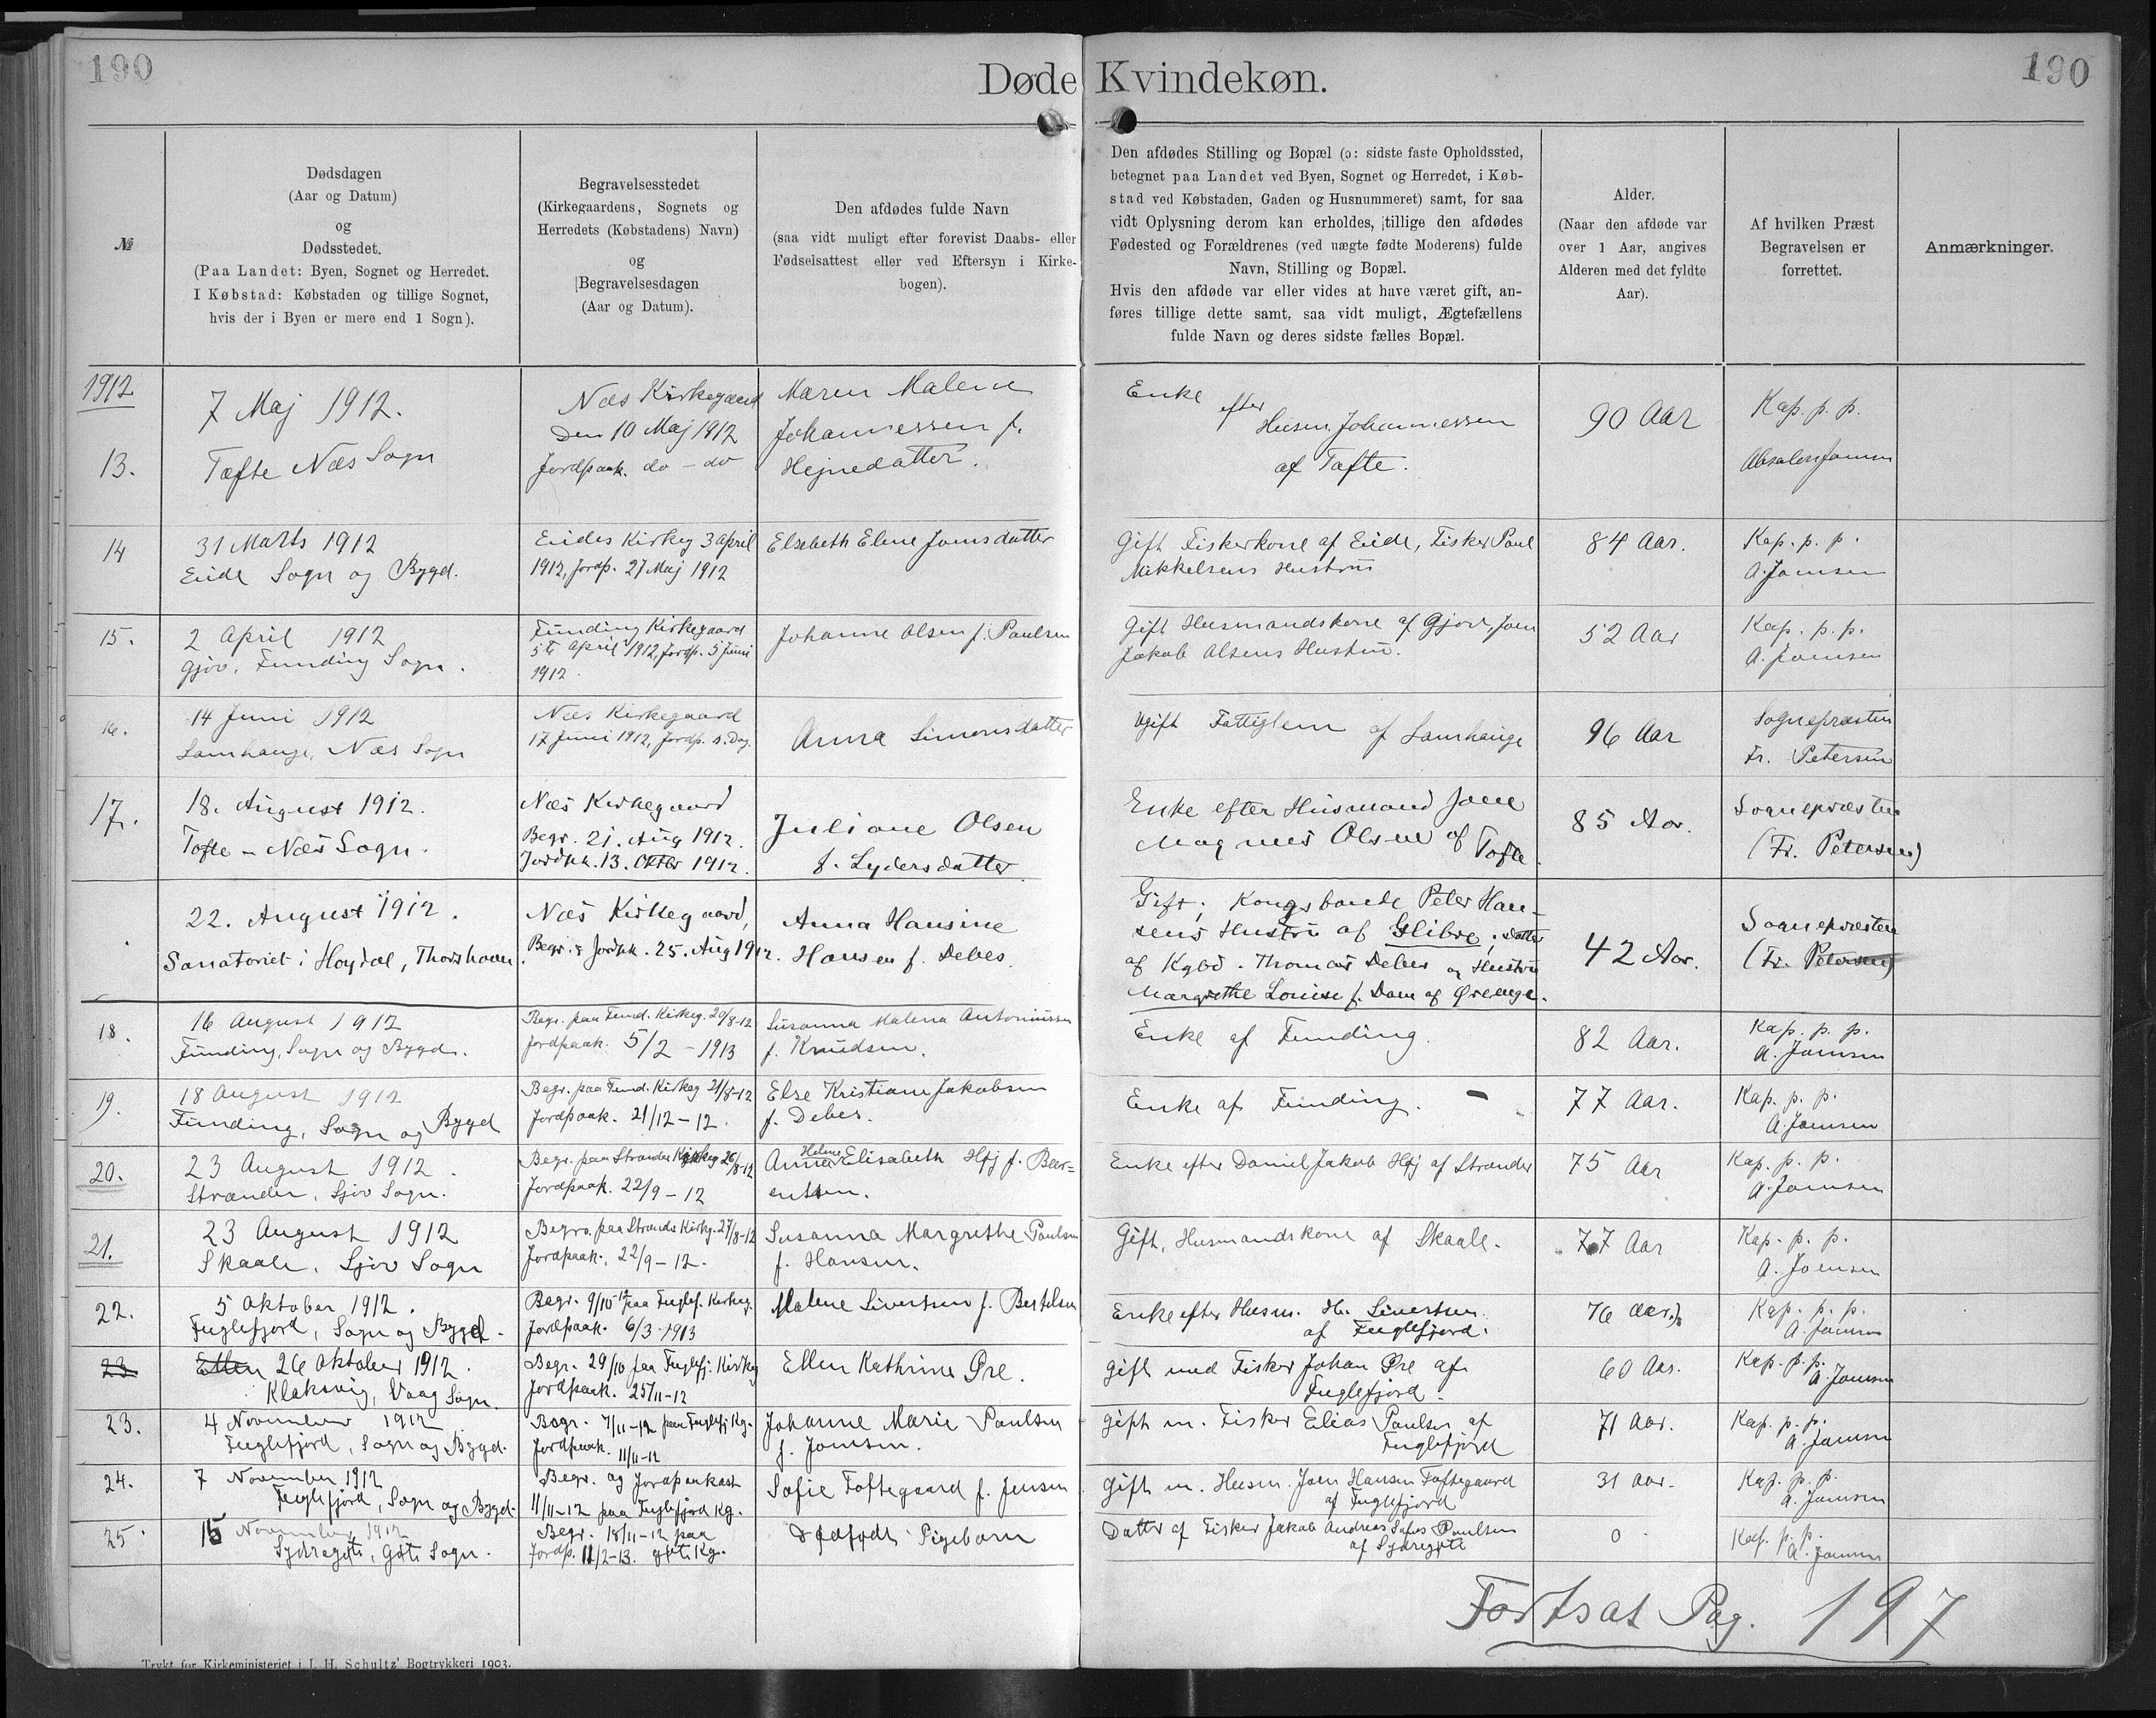 190
190
Døde Kvindekøn.
№
Dødsdagen
(Aar og Datum)
og
Dødsstedet.
(Paa Landet: Byen, Sognet og Herredet.
I Købstad: Købstaden og tillige Sognet,
hvis der i Byen er mere end 1 Sogn).
Begravelsesstedet
(Kirkegaardens, Sognets og
Herredets (Købstadens) Navn)
og
Begravelsesdagen
(Aar og Datum).
Den afdødes fulde Navn
(saa vidt muligt efter forevist Daabs- eller
Fødselsattest eller ved Eftersyn i Kirke-
bogen).
Den afdødes Stilling og Bopæl (ɔ: sidste faste Opholdssted,
betegnet paa Landet ved Byen, Sognet og Herredet, i Køb-
stad ved Købstaden, Gaden og Husnummeret) samt, for saa
vidt Oplysning derom kan erholdes, tillige den afdødes
Fødested og Forældrenes (ved uægte fødte Moderens) fulde
Navn, Stilling og Bopæl.
Hvis den afdøde var eller vides at have været gift, an-
føres tillige dette samt, saa vidt muligt, Ægtefællens
fulde Navn og deres sidste fælles Bopæl.
Alder.
(Naar den afdøde var
over 1 Aar, angives
Alderen med det fyldte
Aar).
Af hvilken Præst
Begravelsen er
forrettet.
Anmærkninger.
1912
13.
7 Maj 1912.
Tofte Næs Sogn
Næs Kirkegaard
Den 10 Maj 1912
Jordpaak. do - do
Maren Malene
Johannessen f.
Hejnedatter.
Enke efter
Husm. Johannessen
af Tofte.
90 Aar
Kap. p. p.
Absalon Joensen
14
31 Marts 1912
Eide Sogn og Bygd.
Eides Kirkeg 3 April
1912, Jordp. 27 Maj 1912
Elsebeth Elene Joensdatter
Gift Fiskerkone af Eide, Fisker Paul
Mikkelsens Hustru
84 Aar.
Kap. p. p.
A. Joensen
15.
2 April 1912
Gjov, Funding Sogn.
Funding Kirkegaard
5te April 1912, Jordp. 5 Juni
1912.
Johanne Olsen f. Paulsen
Gift Husmandskone af Gjov, Joen
Jakob Olsens Hustru.
52 Aar
Kap. p. p.
A. Joensen
16.
14 Juni 1912
Lamhauge, Næs Sogn
Næs Kirkegaard
17 Juni 1912, Jordp. s. Dag.
Anna Simonsdatter
Ugift Fattiglem af Lamhauge
96 Aar
Sognepræsten
Fr. Petersen
17.
18. August 1912.
Tofte - Næs Sogn.
Næs Kirkegaard
Begr. 21. Aug 1912.
Jordpk. 13. Oktbr 1912.
Juliane Olsen
f. Lydersdatter.
Enke efter Husmand Joen
Magnus Olsen af Tofte.
85 Aar.
Sognepræsten
(Fr. Petersen)
22. August 1912.
Sanatoriet i Hoydal, Thorshavn
Næs Kirkegaard,
Begr. & Jordpk. 25. Aug 1912.
Anna Hansine
Hansen f. Debes.
Gift; Kongsbonde Peter Han-
sens Hustru af Glibre; Datter
af Kgbd. Thomas Debes og Hustru
Margrethe Louise f. Dam af Ørenge.
42 Aar.
Sognepræsten
(Fr. Petersen)
18.
16 August 1912
Funding, Sogn og Bygd.
Begr. paa Fund. Kirkeg. 20/8-12
Jordpaak. 5/2 - 1913
Susanna Malena Antoniussen
f. Knudsen.
Enke af Funding.
82 Aar.
Kap. p. p.
A. Joensen
19.
18 August 1912
Funding, Sogn og Bygd
Begr. paa Fund. Kirkeg 21/8-12
Jordpaak. 21/12-12.
Else Kristiane Jakobsen
f. Debes.
Enke af Funding. -
77 Aar.
Kap. p. p.
A. Joensen
20.
23 August 1912.
Strænder, Sjov Sogn.
Begr. paa Strander Kirkeg 26/8-12
Jordpaak. 22/9-12
Anna Helene Elisabeth Høj f. Bær=
entsen.
Enke efter Daniel Jakob Høj af Strænder
75 Aar
Kap. p. p.
A. Joensen
21.
23 August 1912
Skaale, Sjov Sogn
Begra. paa Strander Kirkg. 27/8-12
Jordpaak. 22/9-12.
Susanna Margrethe Paulsen
f. Hansen.
Gift, Husmandskone af Skaale.
77 Aar
Kap. p. p.
A. Joensen
22.
5 Oktober 1912.
Fuglefjord, Sogn og Bygd.
Begr. 9/10 12 paa Fuglef. Kirkeg.
Jordpaak. 6/3-1913
Malene Sivertsen f. Bertelsen
Enke efter Husm. H. Sivertsen
af Fuglefjord.
76 Aar.
Kap. p. p.
A. Joensen
23
Ellen 26 Oktober 1912.
Klaksvig, Vaag Sogn.
Begr. 29/10 paa Fuglefj. Kirkeg
Jordpaak. 25/11-12
Ellen Kathrine Øre.
Gift med Fisker Johan Øre af
Fuglefjord.
60 Aar.
Kap. p. p.
A. Joensen
23.
4 November 1912
Fuglefjord, Sogn og Bygd.
Begr. 7/11-12 paa Fuglefj Kg.
Jordpaak. 11/11-12
Johanne Marie Poulsen
f. Joensen.
Gift m. Fisker Elias Poulsen af
Fuglefjord
71 Aar.
Kap. p. p.
A. Joensen
24.
7 November 1912
Fuglefjord, Sogn og Bygd.
Begr. og Jordpaakast
11/11-12 paa Fuglefjord Kg.
Sofie Toftegaard f. Jensen
Gift m. Husm. Joen Hansen Toftegaard
af Fuglefjord
31 Aar.
Kap. p. p.
A. Joensen
25
15 November 1912
Sydregøte, Gøte Sogn.
Begr. 18/11-12 paa
Jordp. 11/2-13. Gøte Kg.
Dødfødt Pigebarn
Datter af Fisker Jakob Andreas Sofus Poulsen
af Sydregøte
0
Kap. p. p.
A. Joensen
Fortsat Pag. 197
Trykt for Kirkeministeriet i J. H. Schultz' Bogtrykkeri 1903.